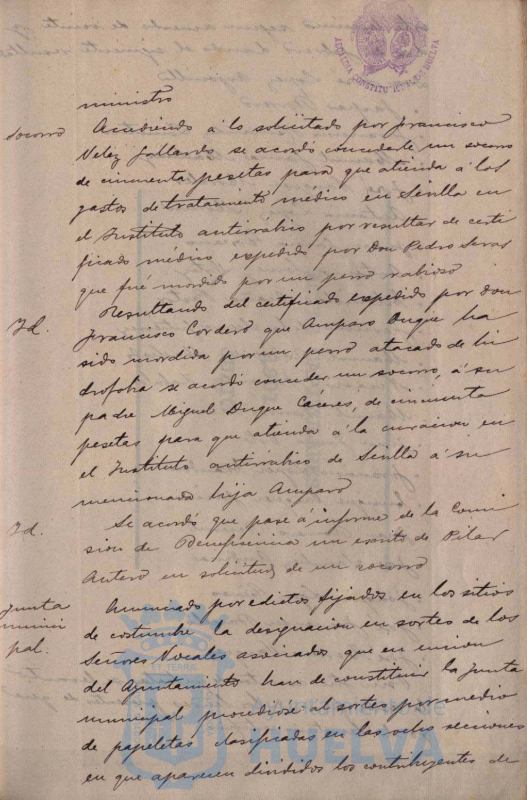 ALCALDIA CONSTITUCIONAL HUELVA
ministro
Socorro
Accediendo á lo solicitado por Francisco
Velez Gallardo se acordó concederle un socorro
de cincuenta pesetas para que atienda á los
gastos de tratamiento médico en Sevilla en
el Instituto antirrábico por resultar de certi
ficado médico expedido por Don Pedro Seras
que fué mordido por un perro rabioso
Id.
Resultando del certificado expedido por Don
Francisco Cordero que Amparo Duque ha
sido mordida por un perro atacado de hi
drofobia se acordó conceder un socorro, á su
padre Miguel Duque Cáceres, de cincuenta
pesetas para que atienda á la curacion en
el Instituto antirrábico de Sevilla á su
mencionada hija Amparo
Id.
Se acordó que pase á informe de la Comi
sion de Beneficencia un escrito de Pilar
Antero en solicitud de un socorro
Junta
munici
pal.
Anunciado por edictos fijados en los sitios
de costumbre la designacion en sorteo de los
Señores Vocales asociados que en union
del Ayuntamiento han de constituir la Junta
municipal procediose al sorteo por medio
de papeletas clasificadas en las ocho secciones
en que aparecen divididos los contribuyentes de
HUELVA